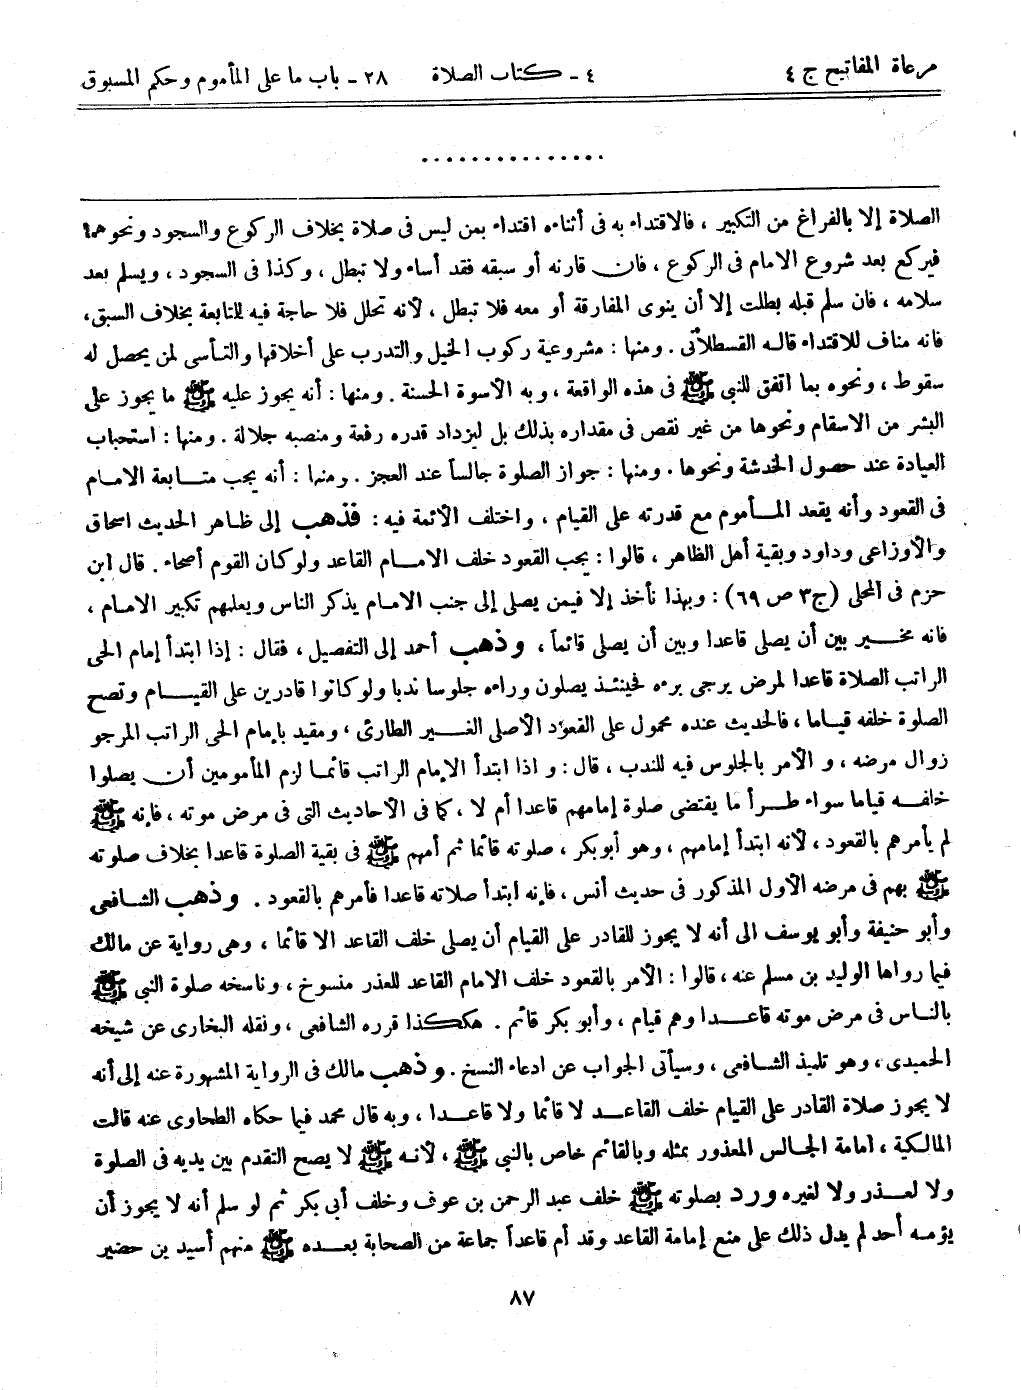 مرعاة المفاتيح ج ٤ ٤ ـ كتاب الصلاة ٢٨ ـ باب ما على المأموم وحكم المسبوق
...............
الصلاة إلا بالفراغ من التكبير ، فالاقتداء به فى أثناءه اقتداء بمن ليس فى صلاة بخلاف الركوع والسجود ونحوهما
فيركع بعد شروع الامام فى الركوع ، فان قارنه أو سبقه فقد أساء ولا تبطل ، وكذا فى السجود ، ويسلم بعد
سلامه ، فان سلم قبله بطلت إلا أن ينوى المفارقة أو معه فلا تبطل ، لأنه تحلل فلا حاجة فيه للتابعة بخلاف السبق،
فانه مناف للاقتداء قاله القسطلانى . ومنها : مشروعية ركوب الخيل والتدرب على أخلاقها والتأسى لمن يحصل له
سقوط ، ونحوه بما اتفق للنبى ﷺ فى هذه الواقعة ، وبه الأسوة الحسنة . ومنها : أنه يجوز عليه ﷺ ما يجوز على
البشر من الاسقام ونحوها من غير نقص فى مقداره بذلك بل ليزداد قدره رفعة ومنصبه جلالة . ومنها : استحباب
العيادة عند حصول الخدشة ونحوها . ومنها : جواز الصلوة جالساً عند العجز . ومنها : أنه يجب متابعة الامام
فى القعود وأنه يقعد المأموم مع قدرته على القيام ، واختلف الأئمة فيه : فذهب إلى ظاهر الحديث اسحاق
والأوزاعى وداود وبقية أهل الظاهر ، قالوا : يجب القعود خلف الامام القاعد ولو كان القوم أصحاء . قال ابن
حزم فى المحلى (ج٣ ص ٦٩) : وبهذا نأخذ إلا فيمن يصلى إلى جنب الامام يذكر الناس ويعلمهم تكبير الامام ،
فانه مخير بين أن يصلى قاعدا وبين أن يصلى قائماً ، وذهب أحمد إلى التفصيل ، فقال : إذا ابتدأ إمام الحى
الراتب الصلاة قاعدا لمرض يرجى برءه فحينئذ يصلون وراءه جلوسا ندبا ولو كانوا قادرين على القيام وتصح
الصلوة خلفه قياما ، فالحديث عنده محمول على القعود الأصلى الغير الطارئ ، ومقيد بإمام الحى الراتب المرجو
زوال مرضه ، و الأمر بالجلوس فيه للندب ، قال : و اذا ابتدأ الإمام الراتب قائما لزم المأمومين أن يصلوا
خلفه قياما سواء طرأ ما يقتضى صلوة إمامهم قاعدا أم لا ، كما فى الأحاديث التى فى مرض موته ، فإنه ﷺ
لم يأمرهم بالقعود ، لأنه ابتدأ إمامهم ، وهو أبو بكر ، صلوته قائما ثم أمهم ﷺ فى بقية الصلوة قاعدا بخلاف صلوته
ﷺ بهم فى مرضه الأول المذكور فى حديث أنس ، فإنه ابتدأ صلاته قاعدا فأمرهم بالقعود . وذهب الشافعى
وأبو حنيفة وأبو يوسف الى أنه لا يجوز للقادر على القيام أن يصلى خلف القاعد الا قائما ، وهى رواية عن مالك
فيما رواها الوليد بن مسلم عنه ، قالوا : الأمر بالقعود خلف الامام القاعد للعذر منسوخ ، وناسخه صلوة النبى ﷺ
بالناس فى مرض موته قاعدا وهم قيام ، وأبو بكر قائم . هكذا قرره الشافعى ، ونقله البخارى عن شيخه
الحميدى ، وهو تلميذ الشافعى ، وسيأتى الجواب عن ادعاء النسخ . وذهب مالك فى الرواية المشهورة عنه إلى أنه
لا يجوز صلاة القادر على القيام خلف القاعد لا قائما ولا قاعدا ، وبه قال محمد فيما حكاه الطحاوى عنه قالت
المالكية ، امامة الجالس المعذور بمثله وبالقائم خاص بالنبى ﷺ ، لأنه ﷺ لا يصح التقدم بين يديه فى الصلوة
ولا لعذر ولا لغيره ورد بصلوته ﷺ خلف عبد الرحمن بن عوف وخلف أبى بكر ثم لو سلم أنه لا يجوز أن
يؤمه أحد لم يدل ذلك على منع إمامة القاعد وقد أم قاعداً جماعة من الصحابة بعده ﷺ منهم أسيد بن حضير
٨٧